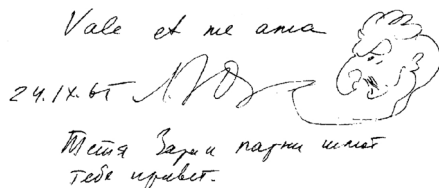 Vale et me ama
24.IX.65
Тётя Зара и парни шлют
тебе привет.